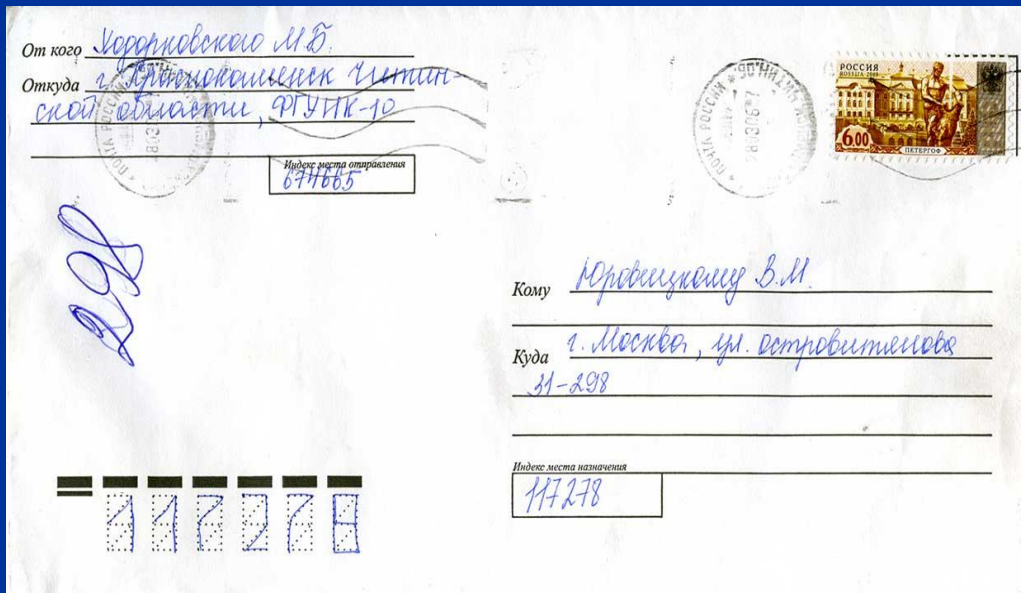 От кого Ходорковского М.Б.
Откуда г. Краснокаменск Читин-
ской области, ФГУ ИК-10
Индекс места отправления
674665
ПОЧТА РОССИИ
280306
298
ПОЧТА РОССИИ
280306
РОССИЯ
ROSSIJA
6.00
ПЕТЕРГОФ
Кому Юровицкому В.М.
Куда г. Москва, ул. островитянова
31-298
Индекс места назначения
117278
117278